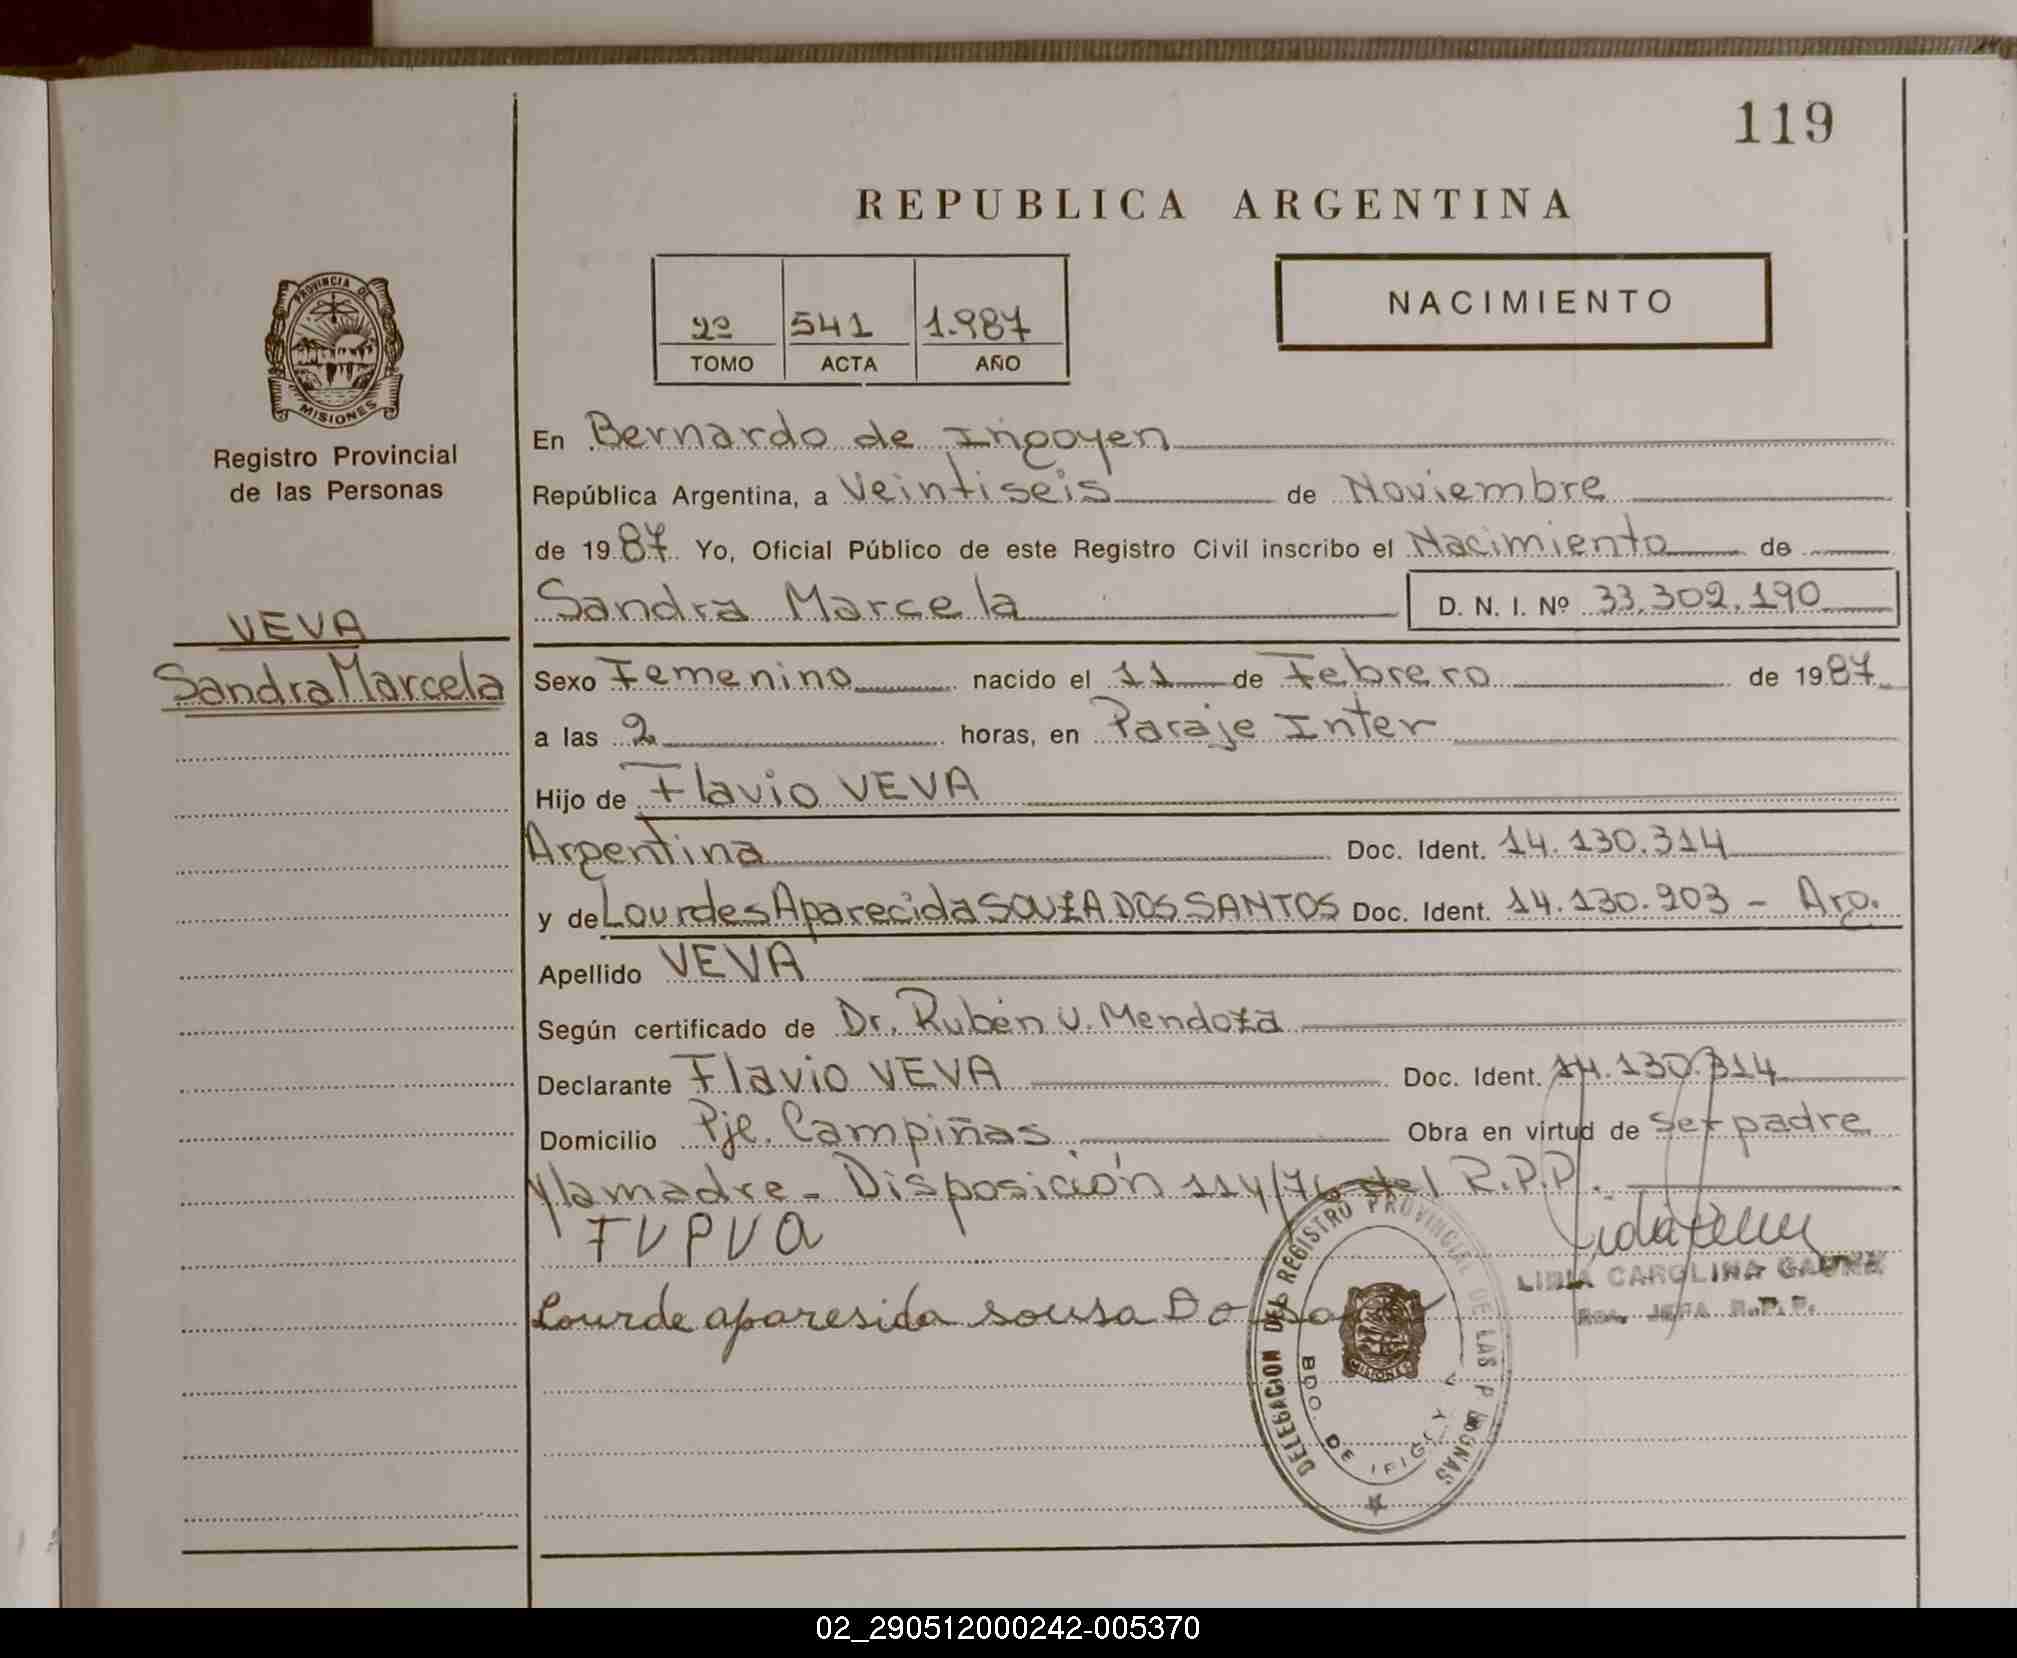 119
REPUBLICA ARGENTINA
2º 541 1.987
TOMO ACTA AÑO
NACIMIENTO
PROVINCIA DE
MISIONES
Registro Provincial
de las Personas
VEVA
Sandra Marcela
En Bernardo de Irigoyen
República Argentina, a Veintiseis de Noviembre
de 1987 Yo, Oficial Público de este Registro Civil inscribo el Nacimiento de
Sandra Marcela D. N. I. Nº 33.302.190
Sexo Femenino nacido el 11 de Febrero de 1987
a las 2 horas, en Paraje Inter
Hijo de Flavio VEVA
Argentina Doc. Ident. 14.130.314
y de Lourdes Aparecida SOUZA DOS SANTOS Doc. Ident. 14.130.903 - Arg.
Apellido VEVA
Según certificado de Dr. Rubén V. Mendoza
Declarante Flavio VEVA Doc. Ident. 14.130.314
Domicilio Pje. Campiñas Obra en virtud de ser padre
y la madre - Disposición 114/76 del R.P.P.
FVPVA
Lourde aparesida sousa Do
LIDIA CAROLINA
JEFA R.P.P.
DELEGACION DEL REGISTRO PROVINCIAL DE LAS
BDO. DE
MISIONES
02_290512000242-005370